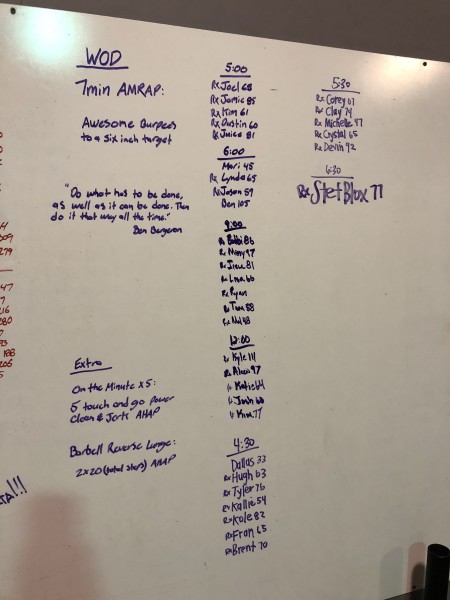 WOD
7min AMRAP:
Awesome Burpees
to a six inch target
"Do what has to be done,
as well as it can be done. Then
do it that way all the time."
Ben Bergeron
Extra
On the Minute x 5:
5 touch and go power
clean & Jerks AHAP
Barbell Reverse Lunge:
2x20 (total steps) AHAP
5:00
Rx Joel 68
Rx Jamie 85
Rx Kim 61
Rx Dustin 60
Rx Juice 81
6:00
Mari 45
Rx Lynda 65
Rx Jason 59
Ben 105
9:00
Rx Bobbi 86
Rx 97
Rx 81
Rx Lisa 66
Rx Ryan
Rx 88
Rx
12:00
Rx Kyle 111
Rx 97
Katie 64
Josh 60
Kim 77
4:30
Dallas 33
Rx Hugh 63
Rx Tyler 76
Rx Kallie 54
Rx Kole 82
Rx Fran 65
Rx Brent 70
5:30
Rx Corey 67
Rx Clay 74
Rx Michelle 97
Rx Crystal 65
Rx Devin 92
6:30
Rx Stet Blox 77